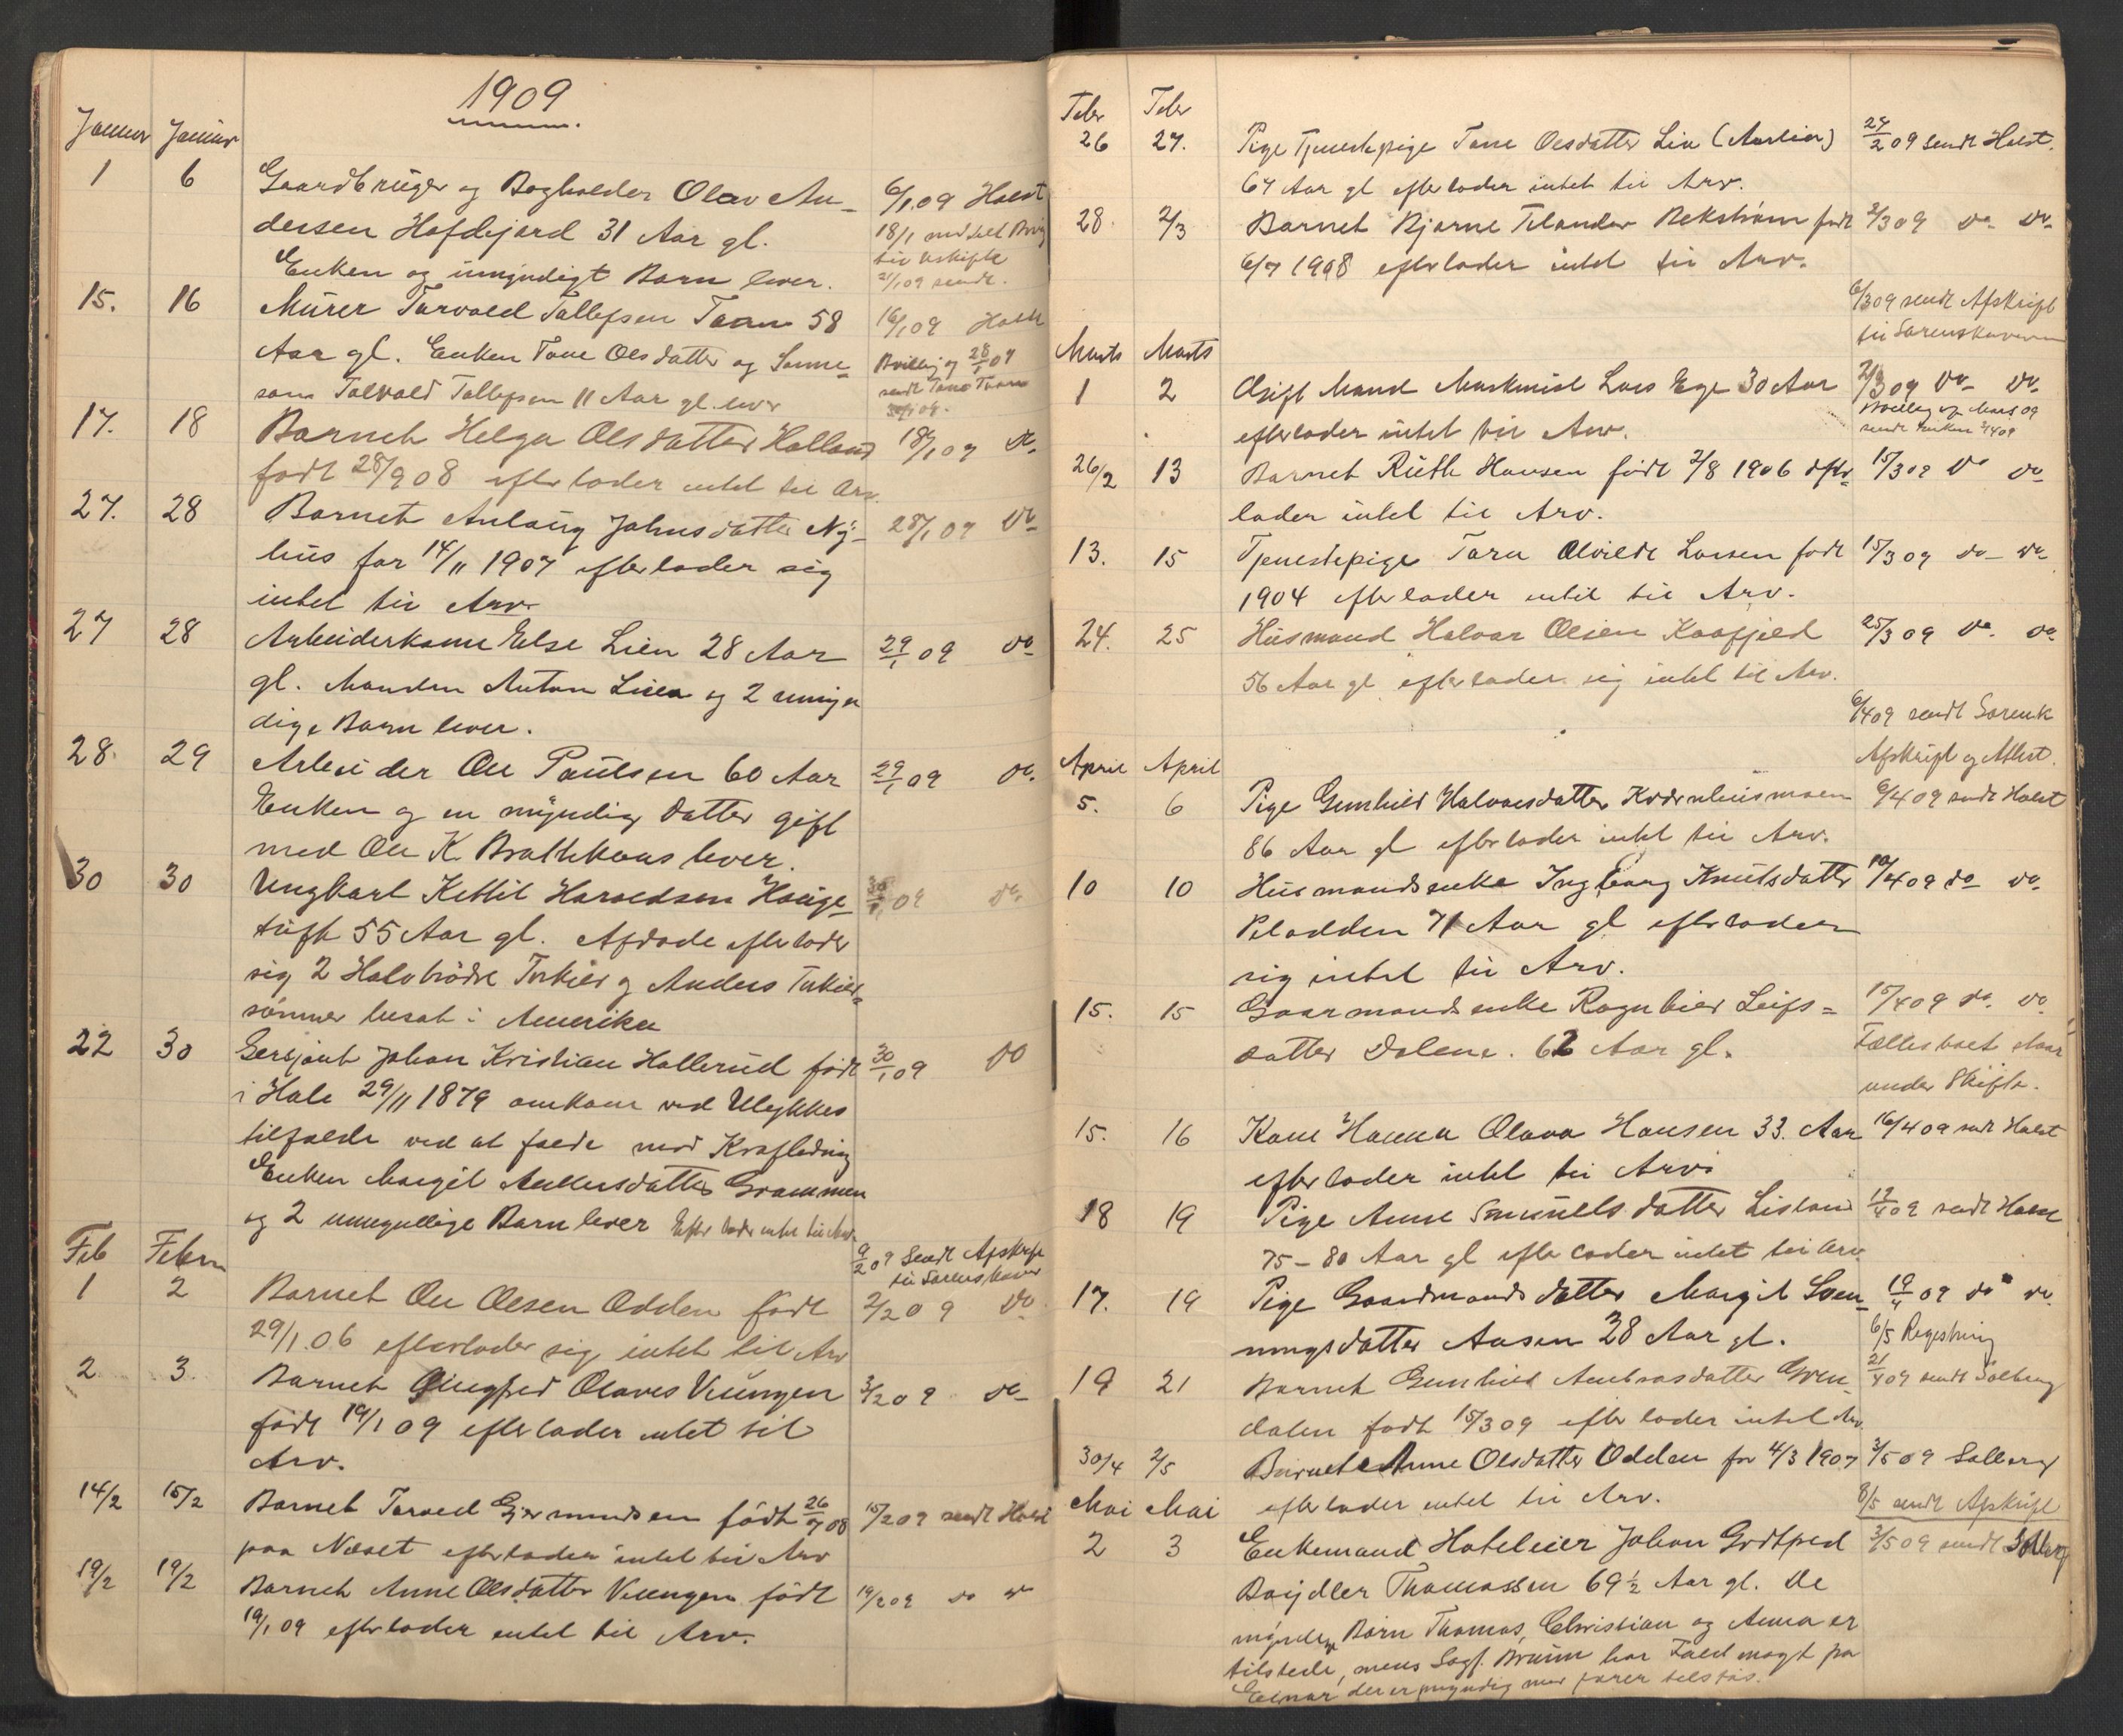 1909
Januar Januar
1 6 Gaardbruger og Bogholder Olav An- 6/1 09 Holst
dersen Hofdejord 31 Aar gl. 18/1 meddelt Bevilg
Enken og umyndigt Barn lever. til Uskifte
21/1 09 sendt.
15. 16 Murer Torvald Tallefsen Taan 58 16/1 09 Holst
Aar gl. Enken Tone Olsdatter og Sønne= Bevillg og 28/1 09
søn Talvald Tallefsen 11 Aar gl. lever sendt Tone Taan
17. 18 Barnet Helga Olsdatter Holland 18/1 09 do
født 28/9 08 efterlader intet til Arv.
27. 28 Barnet Anlaug Johnsdatter Ny- 28/1 09 do
hus før 14/11 1907 efterlader sig
intet til Arv.
27 28 Arbeiderkone Else Lien 28 Aar 29/1 09 do
gl. Manden Anton Lien og 2 umyn
dige Barn lever.
28. 29 Arbeider Ole Paulsen 60 Aar 29/1 09 do.
Enken og en myndig Datter gift
med Ole K. Brattekaas lever.
30 30 Ungkarl Kettil Haroldsen Hauge- 30/1 09 do.
tuft 55 Aar gl. Afdøde efterlader
sig 2 Halvbrødre Torkild og Anders Torkild=
sønner bosat i Amerika
22 30 Sersjant Johan Kristian Hallerud født 30/1 09 do
i Hole 29/11 1879 omkom ved Ulykkes
tilfælde ved at falde mod Kraftledning
Enken Margit Andersdatter Grammen
og 2 umyndige Barn lever Efterlader intet til Arv.
Feb Febru 9/2 09 Sendt Afskrift
til Sorenskriver
1 2 Barnet Ole Olsen Odden født 2/2 09 do.
29/1. 06 efterlader sig intet til Arv
2 3. Barnet Olaves Veungen 3/2 09 do-
født 19/1 09 efterlader intet til
Arv.
14/2 15/2 Barnet Torvald Gjermundsen født 26/7 08 15/2 09 sendt Holst
paa Næset efterlader intet til Arv
19/2 19/2 Barnet Anne Olsdatter Veungen født 19/2 09 do do
19/1 09 efterlader intet til Arv.
Feber Feber
26 27. Pige Tjenestepige Tone Olsdatter Lia (Aaslia) 27/2 09 sendt Holst.
67 Aar gl efterlader intet til Arv.
28. 2/3 Barnet Bjarne Telander Bekstrøm født 2/3 09 do- do-
6/7 1908 efterlader intet til Arv.
6/3 09 sendt Afskrift
til Sorenskriveren
Marts Marts
1 2 Gift Mand Maskinist Lars Ege 30 Aar 2/3 09 do- do-
efterlader intet til Arv. Bevillg af Mars 09
sendt Enken
26/2 13 Barnet Ruth Hansen født 2/8 1906 efter= 15/3 09 do do
lader intet til Arv.
13. 15 Tjenestepige Tora Alvilde Larsen født 15/3 09 do- do
1904 efterlader intet til Arv.
24. 25 Husmand Halvor Olsen Kaafjeld 25/3 09 do. do.
56 Aar gl efterlader sig intet til Arv.
6/4 09 sendt Sorensk
Afskrift og Attest.
April April
5. 6 Pige Gunhild Halvorsdatter Kvernhusmoen 6/4 09 sendt Holst
86 Aar gl efterlader intet til Arv.
10 10 Husmandsenke Ingeborg Knutsdatter 10/4 09 do do.
Pelodden 71 Aar gl efterlader
sig intet til Arv.
15. 15 Gaarmandsenke Ragnhild Leifs= 15/4 09 do. do
datter Dalene. 62 Aar gl. Fællesboet staar
under Skifte.
15. 16 Kone Hanna Olava Hansen 33. Aar 16/4 09 sendt Holst
efterlader intet til Arv.
18 19 Pige Anne Samuelsdatter Lisland 19/4 09 sendt Holst
75-80 Aar gl efterlader intet til Arv.
17. 19 Pige Gaardmandsdatter Margit Sven- 19/4 09 do do.
nungsdatter Aasen 28 Aar gl. 6/5 Registrering
19 21 Barnet Gunhild Ambrosdatter Gren- 21/4 09 sendt Solberg
dalen født 15/3 09 efterlader intet Arv.
30/4 2/5 Barnet Anne Olsdatter Odden før 4/3 1907 3/5 09 Solberg
Mai Mai efterlader intet til Arv. 8/5 sendt Afskrift
2 3 Enkemand Hoteleier Johan Godtfred 3/5 09 sendt Solberg
Bøydler Thomassen 69½ Aar gl. De
myndige Børn Thomas, Christian og Anna er
tilstede, mens Sagf. Bruun har Fuldmagt for
Einar der er myndig men farer tilsjøs.